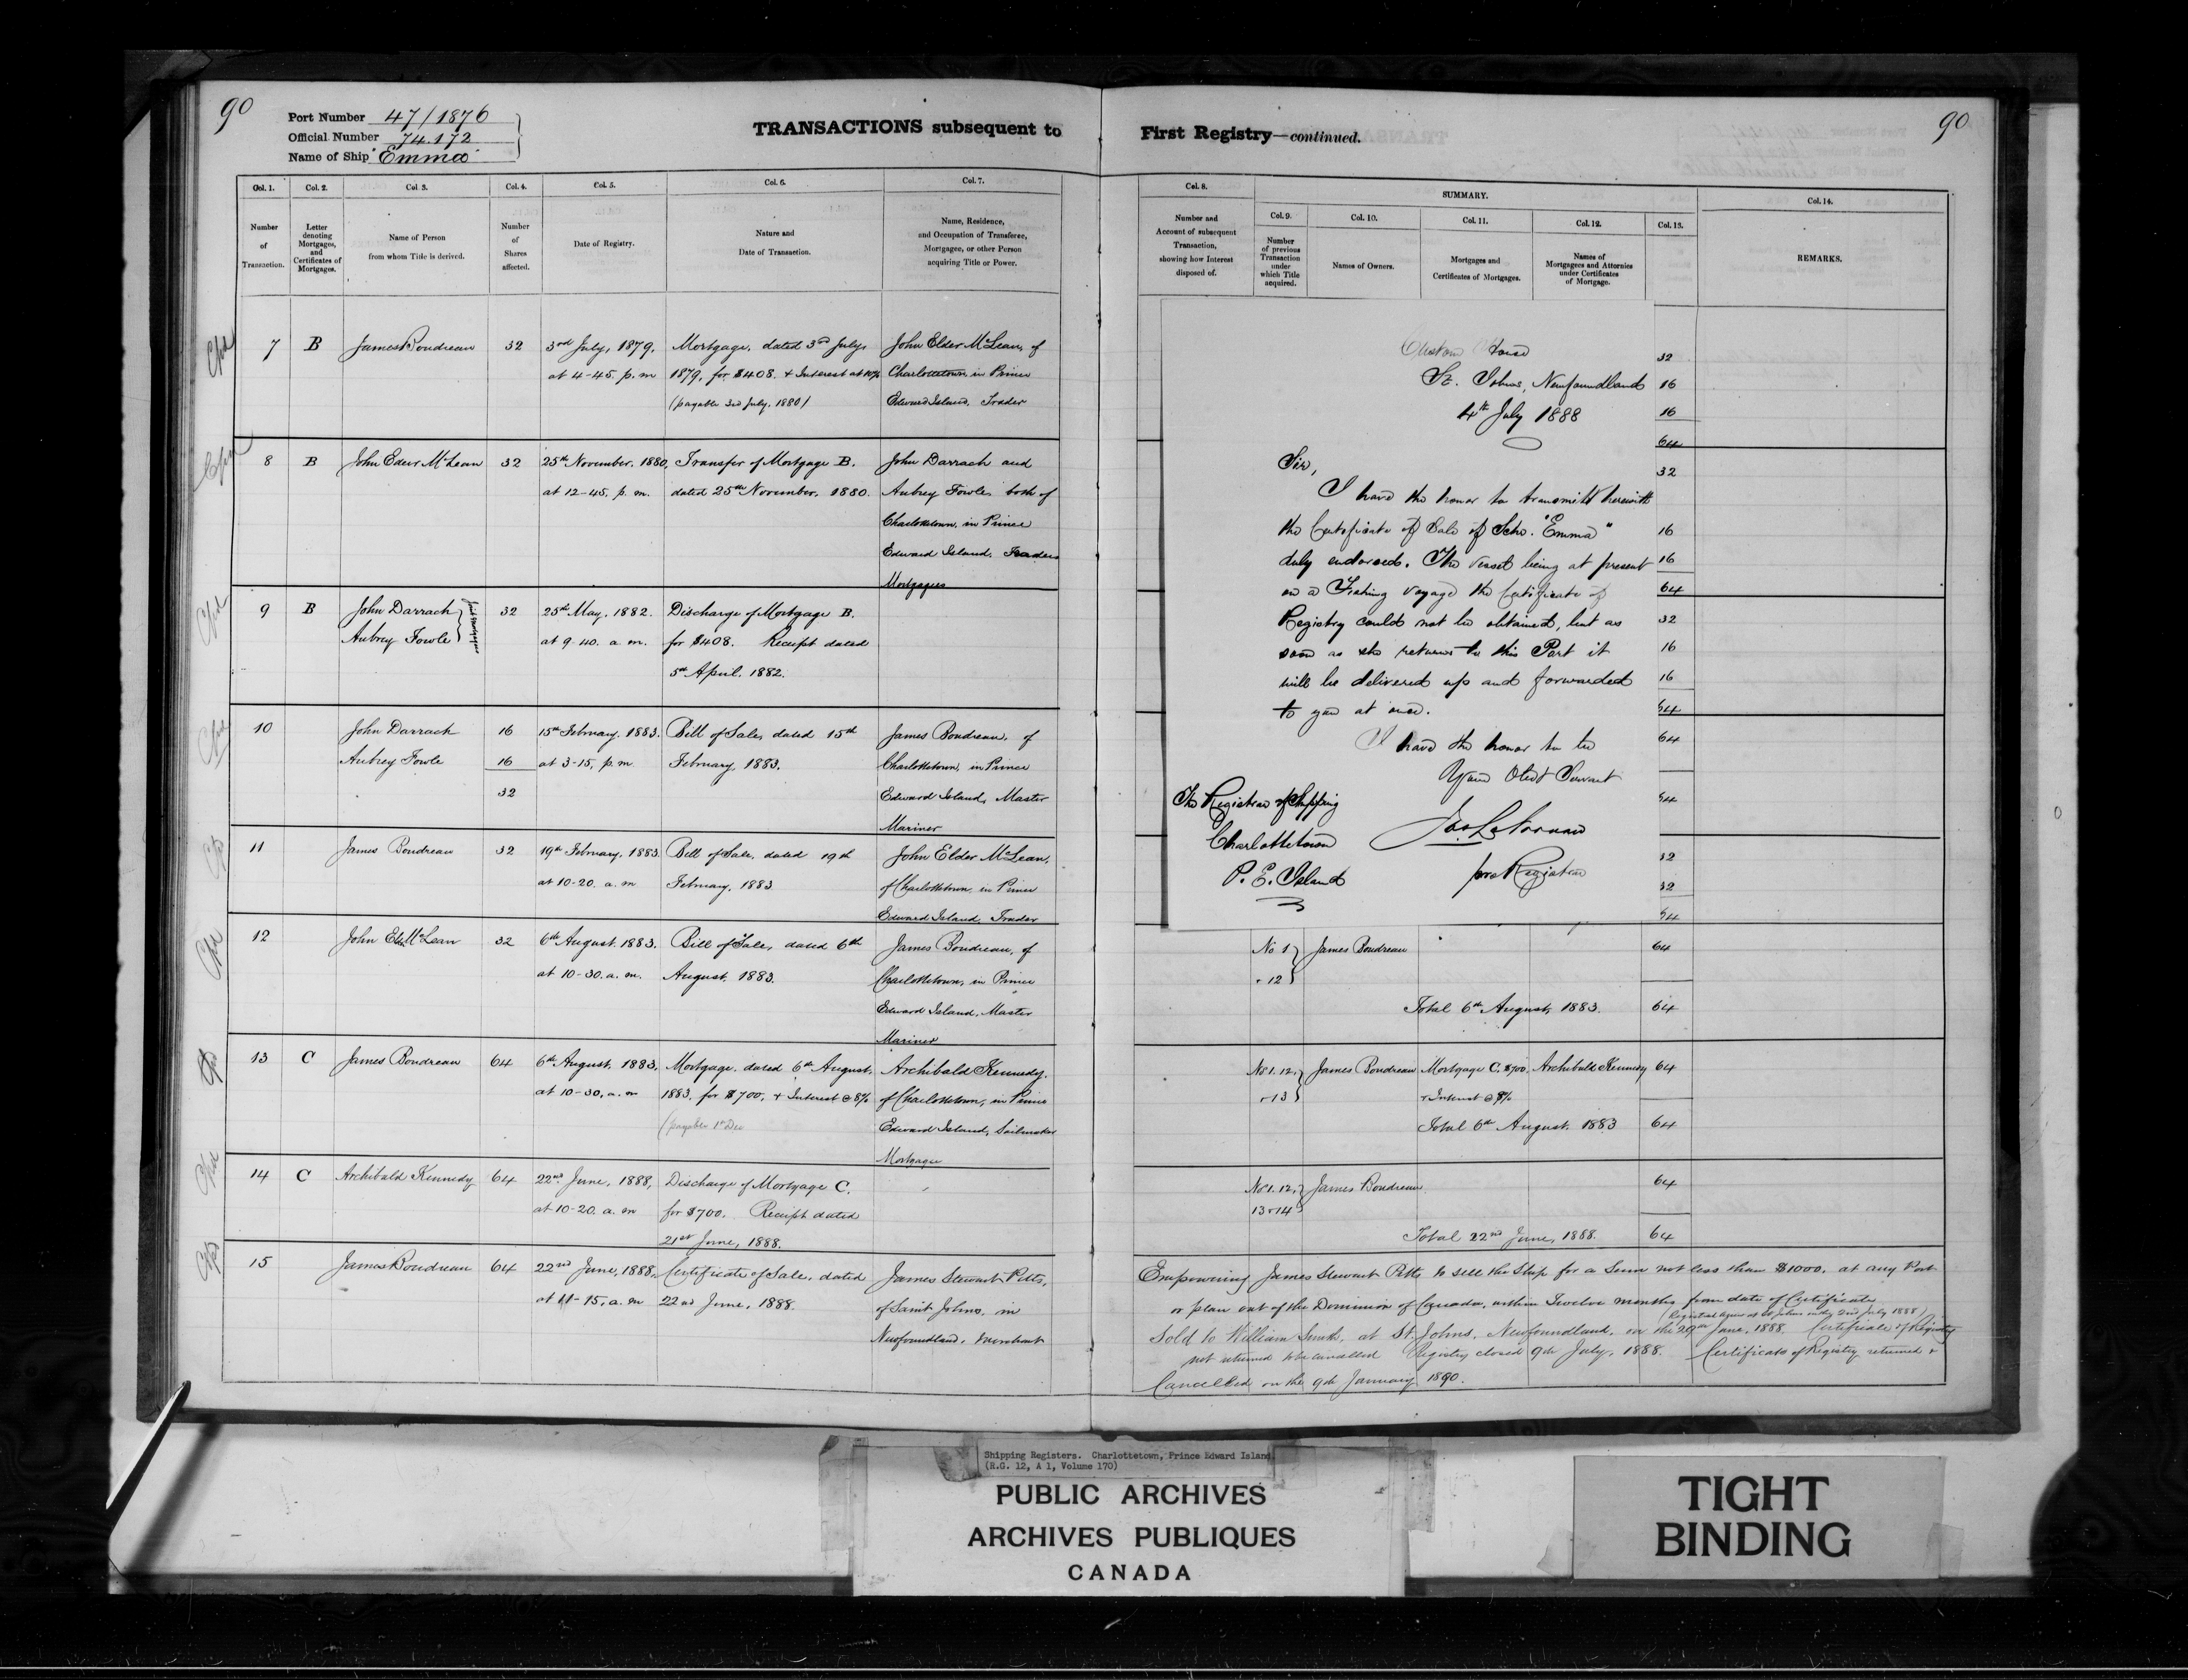 90
Port Number 47/1876
Official Number 74.172
Name of Ship "Emma"
TRANSACTIONS subsequent to
Col. 1. Col. 2. Col. 3. Col. 4. Col. 5. Col. 6. Col. 7.
Number of Transaction.
Letter denoting Mortgages, and Certificates of Mortgages.
Name of Person from whom Title is derived.
Number of Shares affected.
Date of Registry.
Nature and Date of Transaction.
Name, Residence, and Occupation of Transferee, Mortgagee, or other Person acquiring Title or Power.
7 B James Boudreau 32 3rd July, 1879, Mortgage, dated 3rd July, John Elder McLean, of
at 4-45. p. m 1879, for $408. + Interest at 10% Charlottetown in Prince
(payable 3rd July, 1880) Edward Island, Trader
8 B John Elder McLean 32 25th November, 1880, Transfer of Mortgage B. John Darrach and
at 12-45, p. m. dated 25th November, 1880. Aubrey Fowle, both of
Charlottetown, in Prince
Edward Island, Traders
Mortgagees
9 B John Darrach 32 25th May, 1882. Discharge of Mortgage B.
Aubrey Fowle Joint Mortgagees at 9-40. a. m. for $408. Receipt dated
5th April, 1882.
10 John Darrach 16 15th February, 1883. Bill of Sale, dated 15th James Boudreau, of
Aubrey Fowle 16 at 3-15, p. m. February, 1883. Charlottetown, in Prince
32 Edward Island, Master
Mariner
11 James Boudreau 32 19th February, 1883. Bill of Sale, dated 19th John Elder McLean,
at 10-20. a. m February, 1883 of Charlottetown, in Prince
Edward Island, Trader
12 John Elder McLean 32 6th August, 1883. Bill of Sale, dated 6th James Boudreau, of
at 10-30. a. m. August, 1883. Charlottetown, in Prince
Edward Island, Master
Mariner
13 C James Boudreau 64 6th August, 1883, Mortgage, dated 6th August, Archibald Kennedy,
at 10-30, a. m 1883, for $700, + Interest @ 8% of Charlottetown, in Prince
(payable 1st Dec Edward Island, Sailmaker
Mortgagee
14 C Archibald Kennedy 64 22nd June, 1888, Discharge of Mortgage C.
at 10-20. a. m for $700. Receipt dated
21st June, 1888.
15 James Boudreau 64 22nd June, 1888, Certificate of Sale, dated James Stewart Pitts,
at 11-15, a. m 22nd June, 1888. of Saint Johns, in
Newfoundland, Merchant
First Registry—continued.
90
Col. 8. SUMMARY. Col. 14.
Col. 9. Col. 10. Col. 11. Col. 12. Col. 13.
Number and Account of subsequent Transaction, showing how Interest disposed of.
Number of previous Transaction under which Title acquired.
Names of Owners.
Mortgages and Certificates of Mortgages.
Names of Mortgagees and Attornies under Certificates of Mortgage.
REMARKS.
Custom House
St. Johns, Newfoundland
4th July 1888
Sir,
I have the honor to transmitt herewith
the Certificate of Sale of Schr. "Emma"
duly endorsed. The vessel being at present
on a Fishing voyage the Certificate of
Registry could not be obtained, but as
soon as she returns to this Port it
will be delivered up and forwarded
to you at once.
I have the honor to be
Your Obedt Servant
pro Registrar
The Registrar of Shipping
Charlottetown
P. E. Island
32
16
16
64
32
16
16
64
32
16
16
64
64
64
32
32
64
No 1 James Boudreau 64
+ 12
Total 6th August, 1883. 64
No 1. 12, James Boudreau Mortgage C. $700. Archibald Kennedy 64
+ 13 + Interest @ 8%
Total 6th August, 1883 64
No 1. 12, James Boudreau 64
13 + 14
Total 22nd June, 1888. 64
Empowering James Stewart Pitts to sell the Ship for a Sum not less than $1000. at any Port
or place out of the Dominion of Canada, within Twelve months from date of Certificate
(Registered Anew at St Johns 2nd July 1888)
Sold to William at St. Johns, Newfoundland, on the 29th June, 1888. Certificate of Registry
not returned to be cancelled Registry closed 9th July, 1888. Certificate of Registry returned +
Cancelled on the 9th January 1890.
Shipping Registers. Charlottetown, Prince Edward Island
(R.G. 12, A 1, Volume 170)
PUBLIC ARCHIVES
ARCHIVES PUBLIQUES
CANADA
TIGHT
BINDING